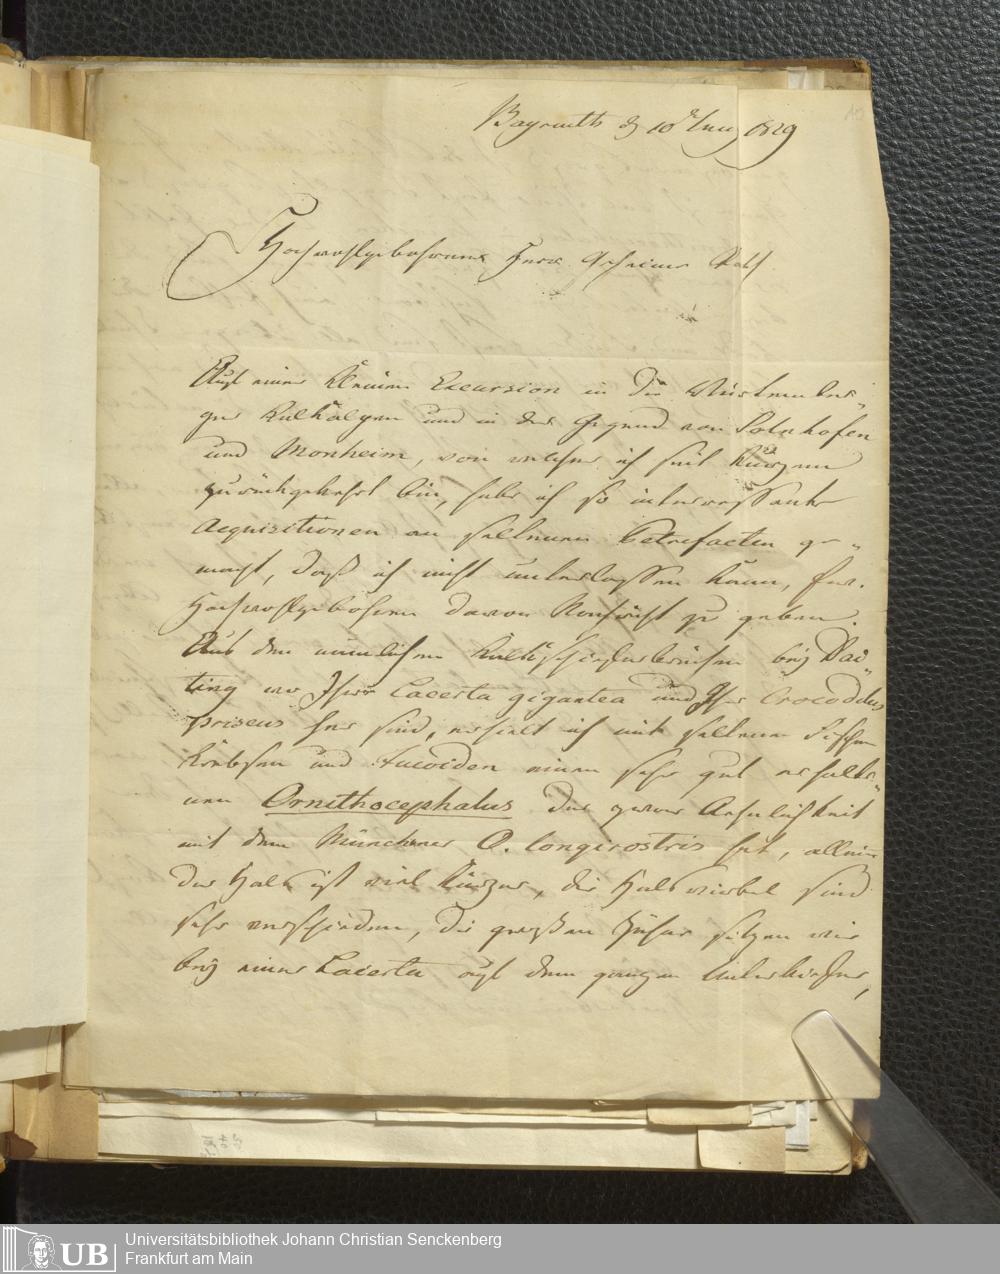 Bayreuth d 10ᵗ 1829
Hochwohlgebohrner Herr Geheimer Rath
Auf einer kleinen Excursion in die Würtember„
ger und in der Gegend von Solnhofen
und Monheim, von welcher ich seit kurzem
zurückgekehrt bin, habe ich so interessante
Acquisitionen an seltenen Petrefacten ge„
macht, daß ich nicht unterlassen kann, Euer.
Hochwohlgebohren davon Nachricht zu geben.
Aus den nämlichen Kalkschieferbrüchen bey Dai„
ting wo Ihre Lacerta gigantea und Ihr Crocodilus
priscus her sind, erhielt ich mit seltenen Fischen
Krebsen und Fucoiden einen sehr gut erhalte„
nen Ornithocephalus der zwar Aehnlichkeit
mit dem Münchner O. longirostris hat, allein
der Hals ist viel kürzer, die Halswirbel sind
sehr verschieden, die großen Zähne sitzen wie
bey einer Lacerta auf dem ganzen Unterkiefer,
UB
Universitätsbibliothek Johann Christian Senckenberg
Frankfurt am Main